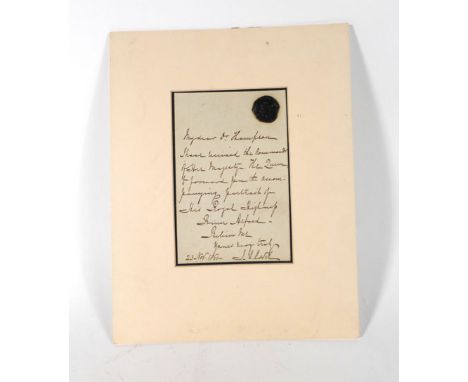 My dear Dr Thompson
I have received the Commands
of Her Majesty The Queen
to forward you the accom-
panying portrait of
His Royal Highness
Prince Alfred -
Believe me
Yours very truly
23 Nov